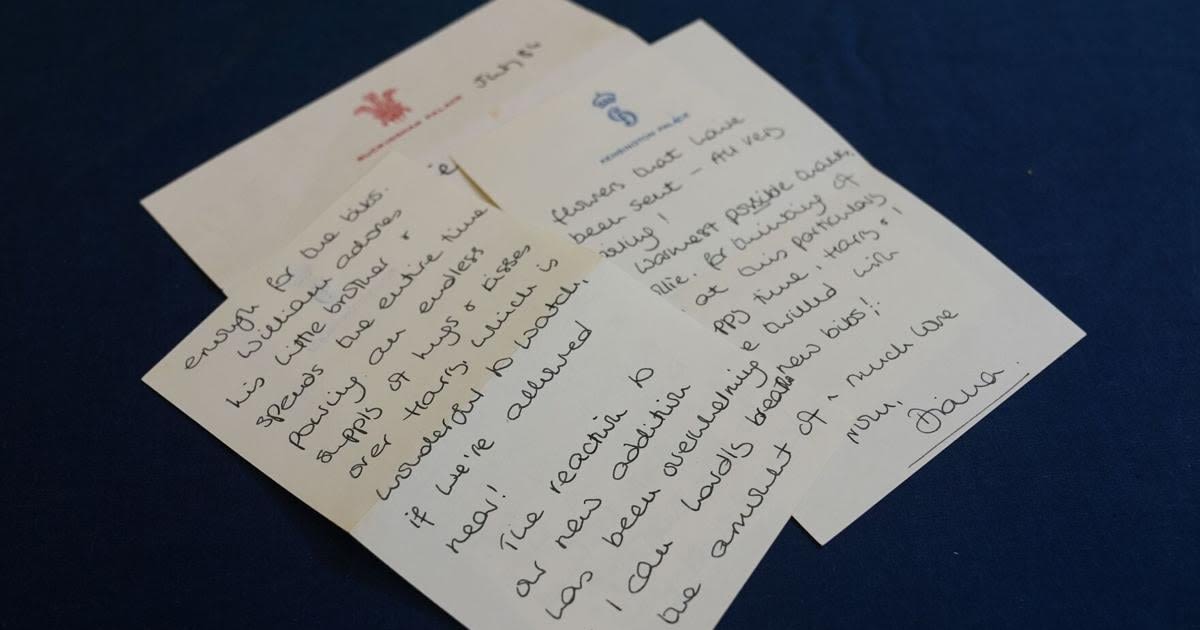 July 84
BUCKINGHAM PALACE
enough for the bibs.
William adores
his little brother &
spends the entire time
pouring an endless
supply of hugs & kisses
over Harry, which is
wonderful to watch,
if we're allowed
near!
The reaction to
our new addition
has been overwhelming
I can hardly breath
the amount of
KENSINGTON PALACE
flowers that have
been sent - All very
warmest possible thanks,
for thinking of
at this particularly
time, Harry & I
thrilled with
new bibs!!
much love
from,
Diana.